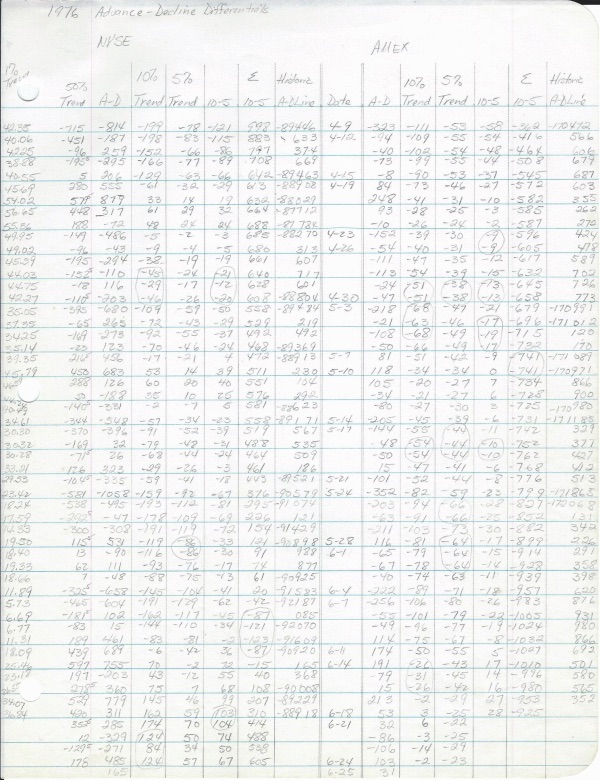 1976 Advance-Decline Differentials
NYSE AMEX
1% Trend 50% Trend A-D 10% Trend 5% Trend 10-5 Σ 10-5 Historic A-D Line Date A-D 10% Trend 5% Trend 10-5 Σ 10-5 Historic A-D Line
42.35 -715 -814 -179 -78 -121 998 -89446 4-9 -323 -111 -53 -58 -362 -170472
40.06 -451 -187 -198 -83 -115 883 633 4-12 -94 -109 -55 -54 -416 566
42.25 -96 259 -152 -66 -86 797 374 -40 -102 -54 -48 -464 606
-295 -166 -77 -89 708 669 -73 -99 -55 -44 -508 679
40.55 5 206 -129 -63 -66 642 -89463 4-15 -8 -90 -53 -37 -545 687
45.69 280 555 -61 -32 -29 613 -88908 4-19 84 -73 -46 -27 -572 603
54.02 579 879 33 14 19 632 -88029 248 -41 -31 -10 -582 355
56.65 448 317 61 29 32 664 -87712 93 -28 -25 -3 -585 262
55.36 188 -72 48 24 24 688 -87782 -10 -26 -24 -2 -587 272
49.95 -149 -486 -5 -2 -3 685 -88270 4-23 -152 -39 -30 -9 -596 424
49.02 -26 -43 -9 -4 -5 680 313 4-26 -54 -40 -31 -9 -605 478
45.39 -195 -294 -38 -19 -19 661 607 -111 -47 -35 -12 -617 589
44.03 -110 -45 -24 -21 640 717 -113 -54 -39 -15 -632 702
44.75 -18 116 -29 -17 -12 628 601 -24 -51 -38 -13 -645 726
42.27 -203 -46 -26 -20 608 -88804 4-30 -47 -51 -38 -13 -658 773
35.05 -395 -680 -109 -59 -50 558 -89484 5-3 -218 -68 -47 -21 -679 -170991
37.35 -65 265 -72 -43 -29 529 219 -21 -63 -46 -17 -696 -171012
34.25 -169 -273 -92 -55 -37 492 492 -108 -68 -49 -19 -715 120
35.14 -20 123 -70 -46 -24 468 -89369 -50 -66 -49 -17 -732 170
39.35 456 -17 -21 4 472 -88913 5-7 81 -51 -42 -9 -741 -171089
45.79 450 683 53 14 39 511 230 5-10 118 -34 -34 0 -741 -170971
288 126 60 20 40 551 104 105 -20 -27 7 -734 866
50 -188 35 10 25 576 292 -34 -21 -27 6 -728 900
-331 -2 -7 5 581 -88623 -80 -27 -30 3 -725 -170980
34.61 -344 -548 -57 -34 -23 558 -89171 5-14 -205 -45 -39 -6 -731 -171185
30.30 -370 -396 -91 -52 -39 519 567 5-17 -144 -55 -44 -11 -742 329
30.32 -169 32 -79 -48 -31 488 535 -48 -54 -44 -10 -752 377
30.28 26 -68 -44 -24 464 509 -50 -54 -44 -10 -762 427
126 323 -29 -26 -3 461 186 15 -47 -41 -6 -768 412
29.53 -335 -59 -41 -18 443 -89521 5-21 -101 -52 -44 -8 -776 513
23.42 -581 -1058 -159 -92 -67 376 -90579 5-24 -352 -82 -59 -23 -799 -171865
18.24 -538 -495 -193 -112 -81 295 -91074 -203 -94 -66 -28 -827 -172068
17.59 -47 -178 -109 -69 226 121 -63 -91 -66 -25 -852 131
-300 -308 -191 -119 -72 154 -91429 -211 -103 -73 -30 -882 342
19.50 115 531 -119 -86 -33 121 -90898 5-28 116 -81 -64 -17 -899 226
18.40 13 -90 -116 -86 -30 91 988 6-1 -65 -79 -64 -15 -914 291
19.33 62 111 -93 -76 -17 74 877 -67 -78 -64 -14 -928 358
18.66 7 -48 -88 -75 -13 61 -90925 -40 -74 -63 -11 -939 398
11.89 -325 -658 -145 -104 -41 20 -91583 6-4 -222 -89 -71 -18 -957 620
5.73 -465 -604 -191 -129 -62 -42 -92187 6-7 -256 -106 -80 -26 -983 876
6.69 -181 102 -162 -117 -45 -87 085 -55 -101 -79 -22 -1005 931
6.77 -83 15 -144 -110 -34 -121 -92070 -49 -96 -77 -19 -1024 980
11.31 189 461 -83 -81 -2 -123 -91609 114 -75 -67 -8 -1032 866
18.09 439 689 -6 -42 36 -87 -90920 6-11 174 -50 -55 5 -1027 692
25.46 597 755 70 -2 72 -15 165 6-14 191 -26 -43 17 -1010 501
197 -203 43 -12 55 40 368 -79 -31 -45 14 -996 580
278 360 75 7 68 108 -90008 15 -26 -42 16 -980 565
529 779 145 46 99 207 -89229 213 -2 -29 27 -953 352
26.84 420 311 162 59 103 310 -88918 6-18 53 3 -25 28 -925
285 174 70 104 414 6-21 32 6 -22
12 -329 124 50 74 488 -86 -3 -25
-271 84 34 50 538 -106 -14 -29
178 485 124 57 67 605 6-24 103 -2 -23
165 6-25 31